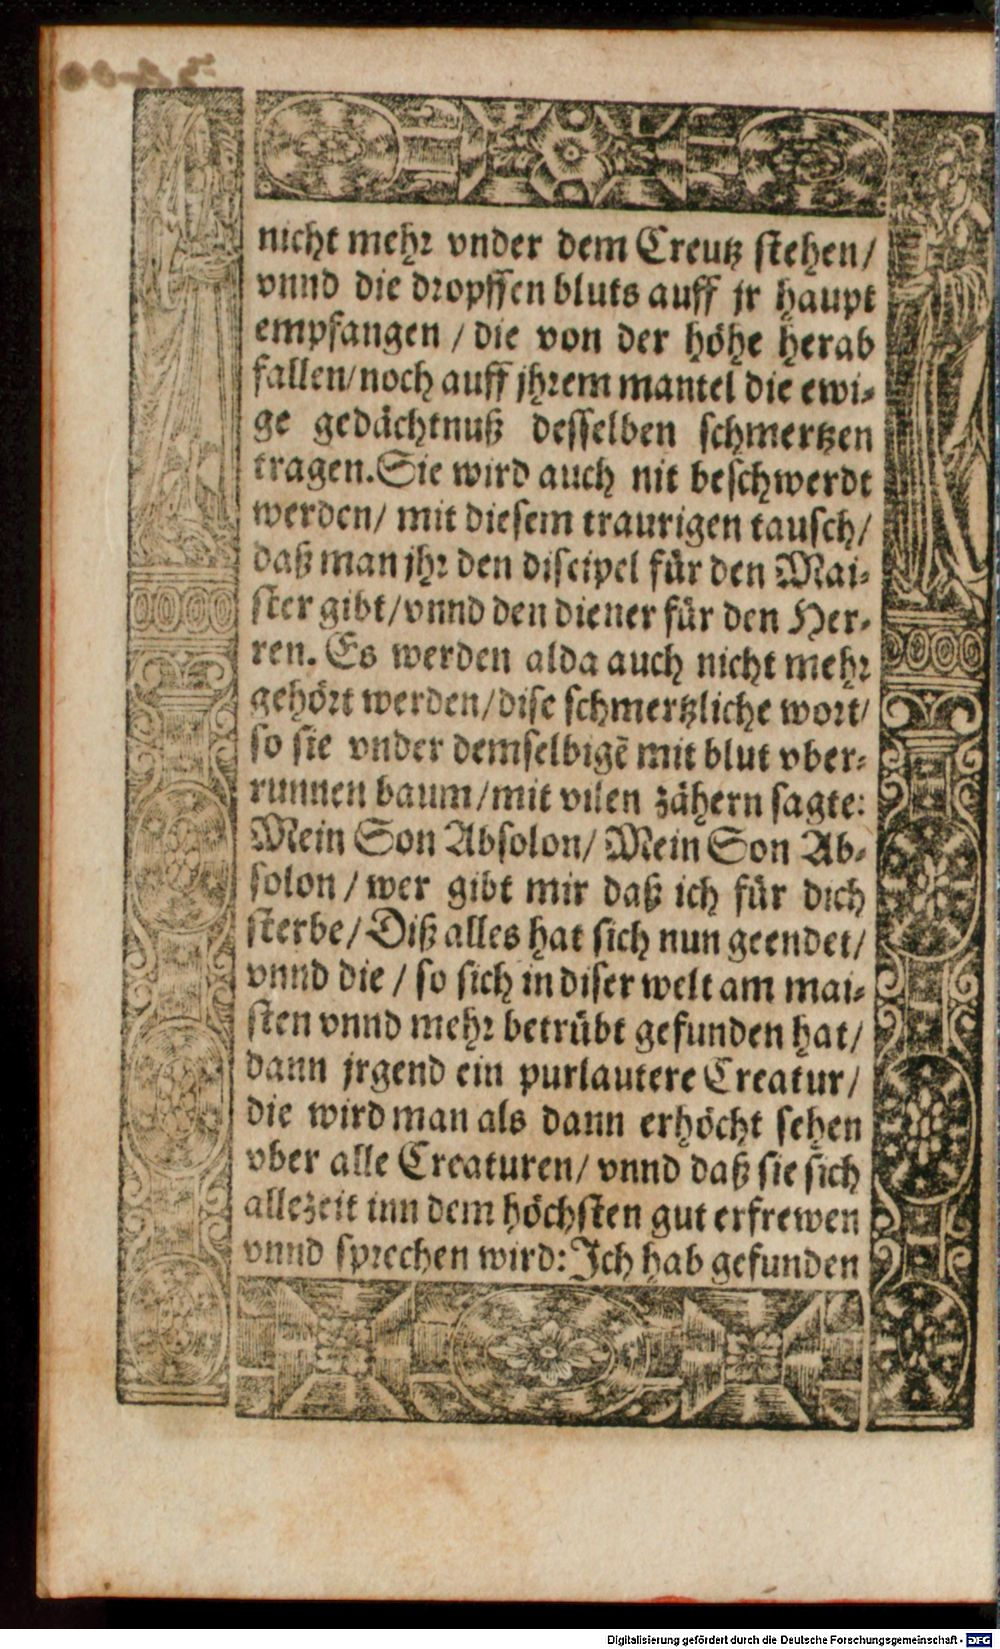 nicht mehr vnder dem Creutz stehen/
vnnd die dropffen bluts auff jr haupt
empfangen / die von der höhe herab
fallen/noch auff jhrem mantel die ewi-
ge gedächtnuß desselben schmertzen
tragen. Sie wird auch nit beschwerdt
werden/ mit diesem traurigen tausch/
daß man jhr den discipel für den Mai-
ster gibt/vnnd den diener für den Her-
ren. Es werden alda auch nicht mehr
gehört werden/dise schmertzliche wort/
so sie vnder demselbigẽ mit blut vber-
runnen baum/mit vilen zähern sagte:
Mein Son Absolon/ Mein Son Ab-
solon / wer gibt mir daß ich für dich
sterbe/ Diß alles hat sich nun geendet/
vnnd die / so sich in diser welt am mai-
sten vnnd mehr betrübt gefunden hat/
dann jrgend ein purlautere Creatur/
die wird man als dann erhöcht sehen
vber alle Creaturen/ vnnd daß sie sich
allezeit inn dem höchsten gut erfrewen
vnnd sprechen wird: Ich hab gefunden
Digitalisierung gefördert durch die Deutsche Forschungsgemeinschaft - DFG